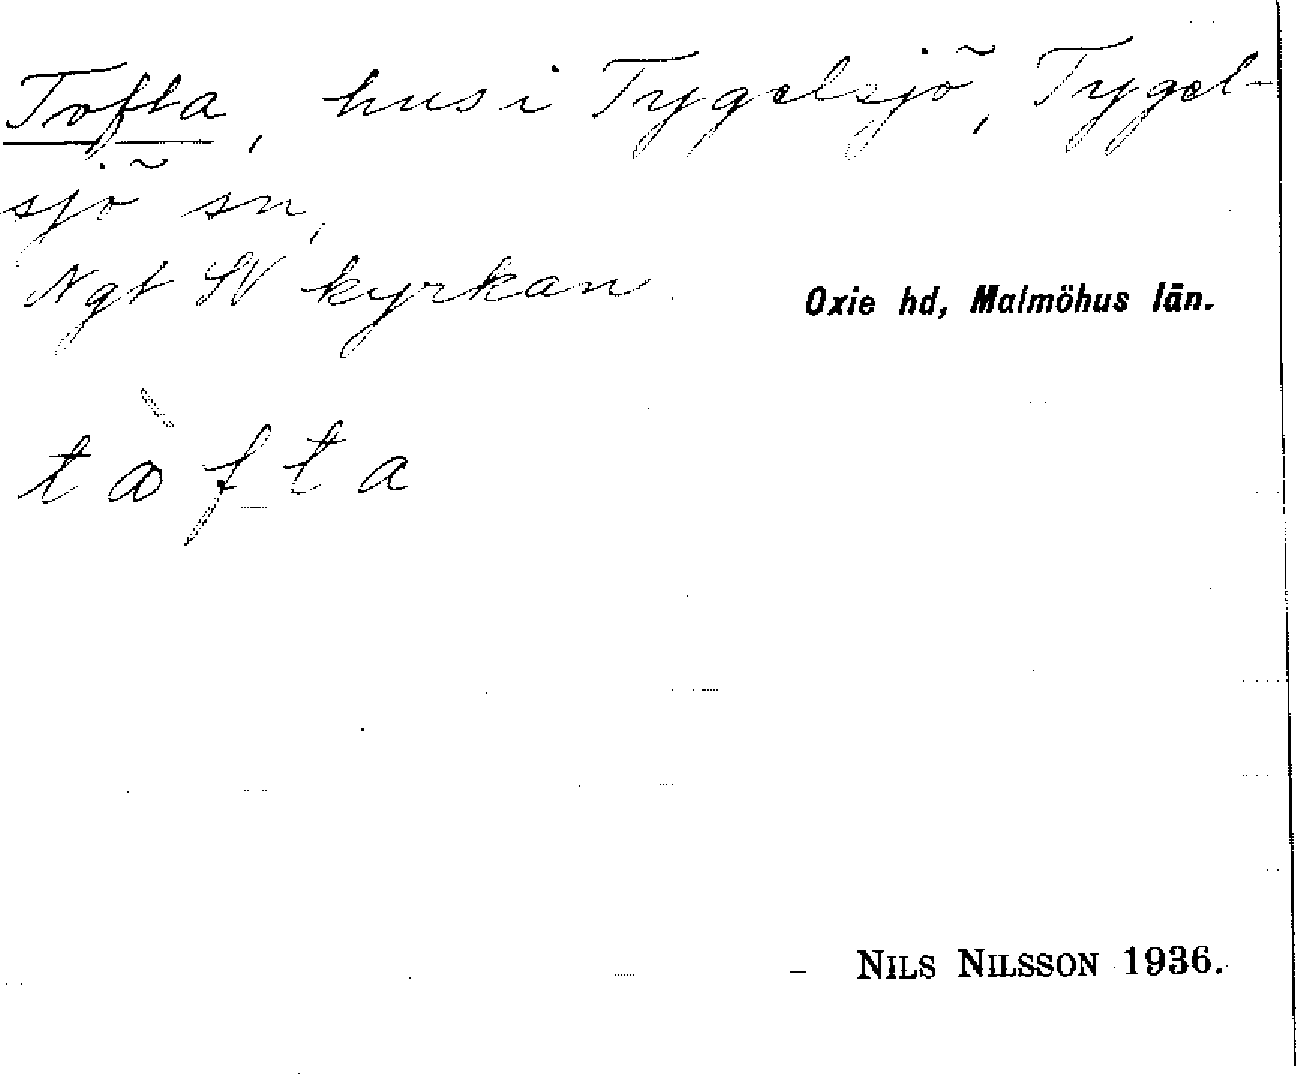 Tofta, hus i Tygelsjö, Tygel-
sjö sn,
Ngt SV kyrkan.
Oxie hd, Malmöhus län.
tòfta
NILS NILSSON 1936.